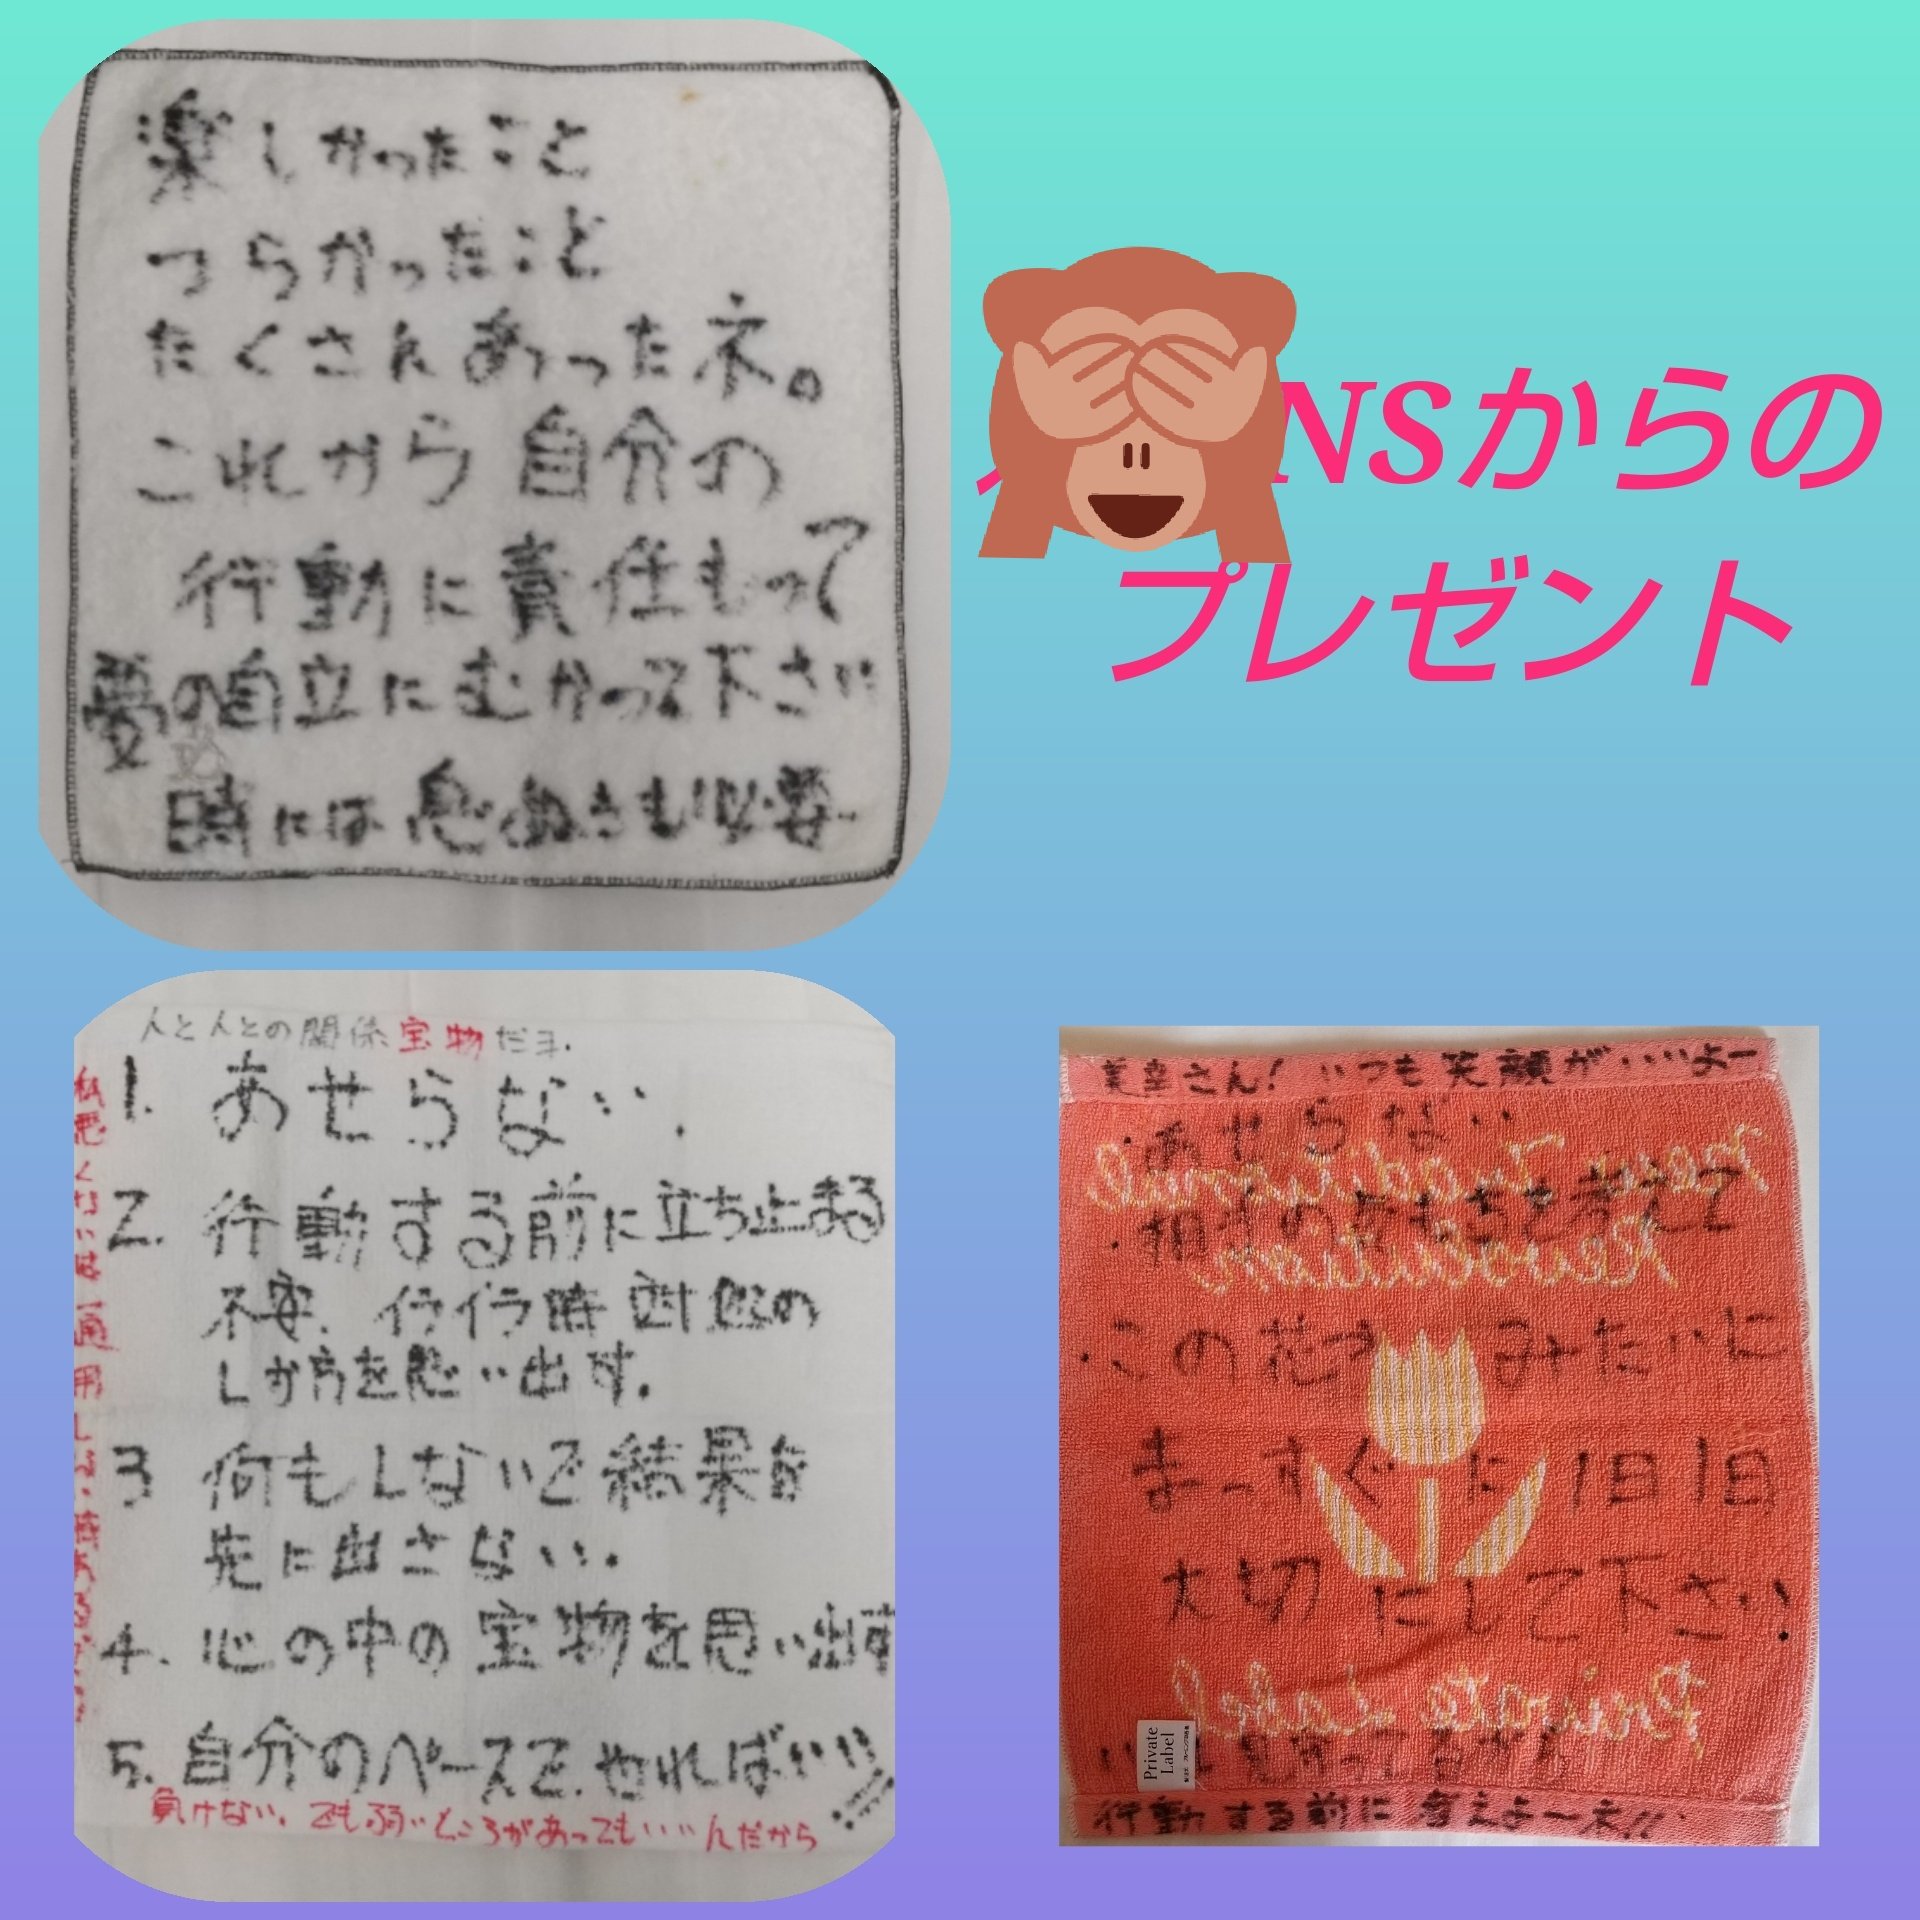 楽しかったこと
つらかったこと
たくさんあったネ。
これから自分の
行動に責任もって
夢の自立にむかって下さい
時には息ぬきも必要
NSからの
プレゼント
人と人との関係宝物だヨ.
1. あせらない.
2. 行動する前に立ち止まる
不安.イライラ時対処の
しかたを思い出す.
3 何もしないで結果を
先に出さない.
4. 心の中の宝物を思い出す
5. 自分のペースで.やればいい!!
負けない.でも弱いところがあってもいいんだから
さん!いつも笑顔がいいよー
・あせらない
・相手の気もちを考えて
New Traditional
Revolution
・この花 みたいに
まっすぐに1日1日
大切にして下さい.
Private Label
Private
Label
行動する前に考えよーネ!!